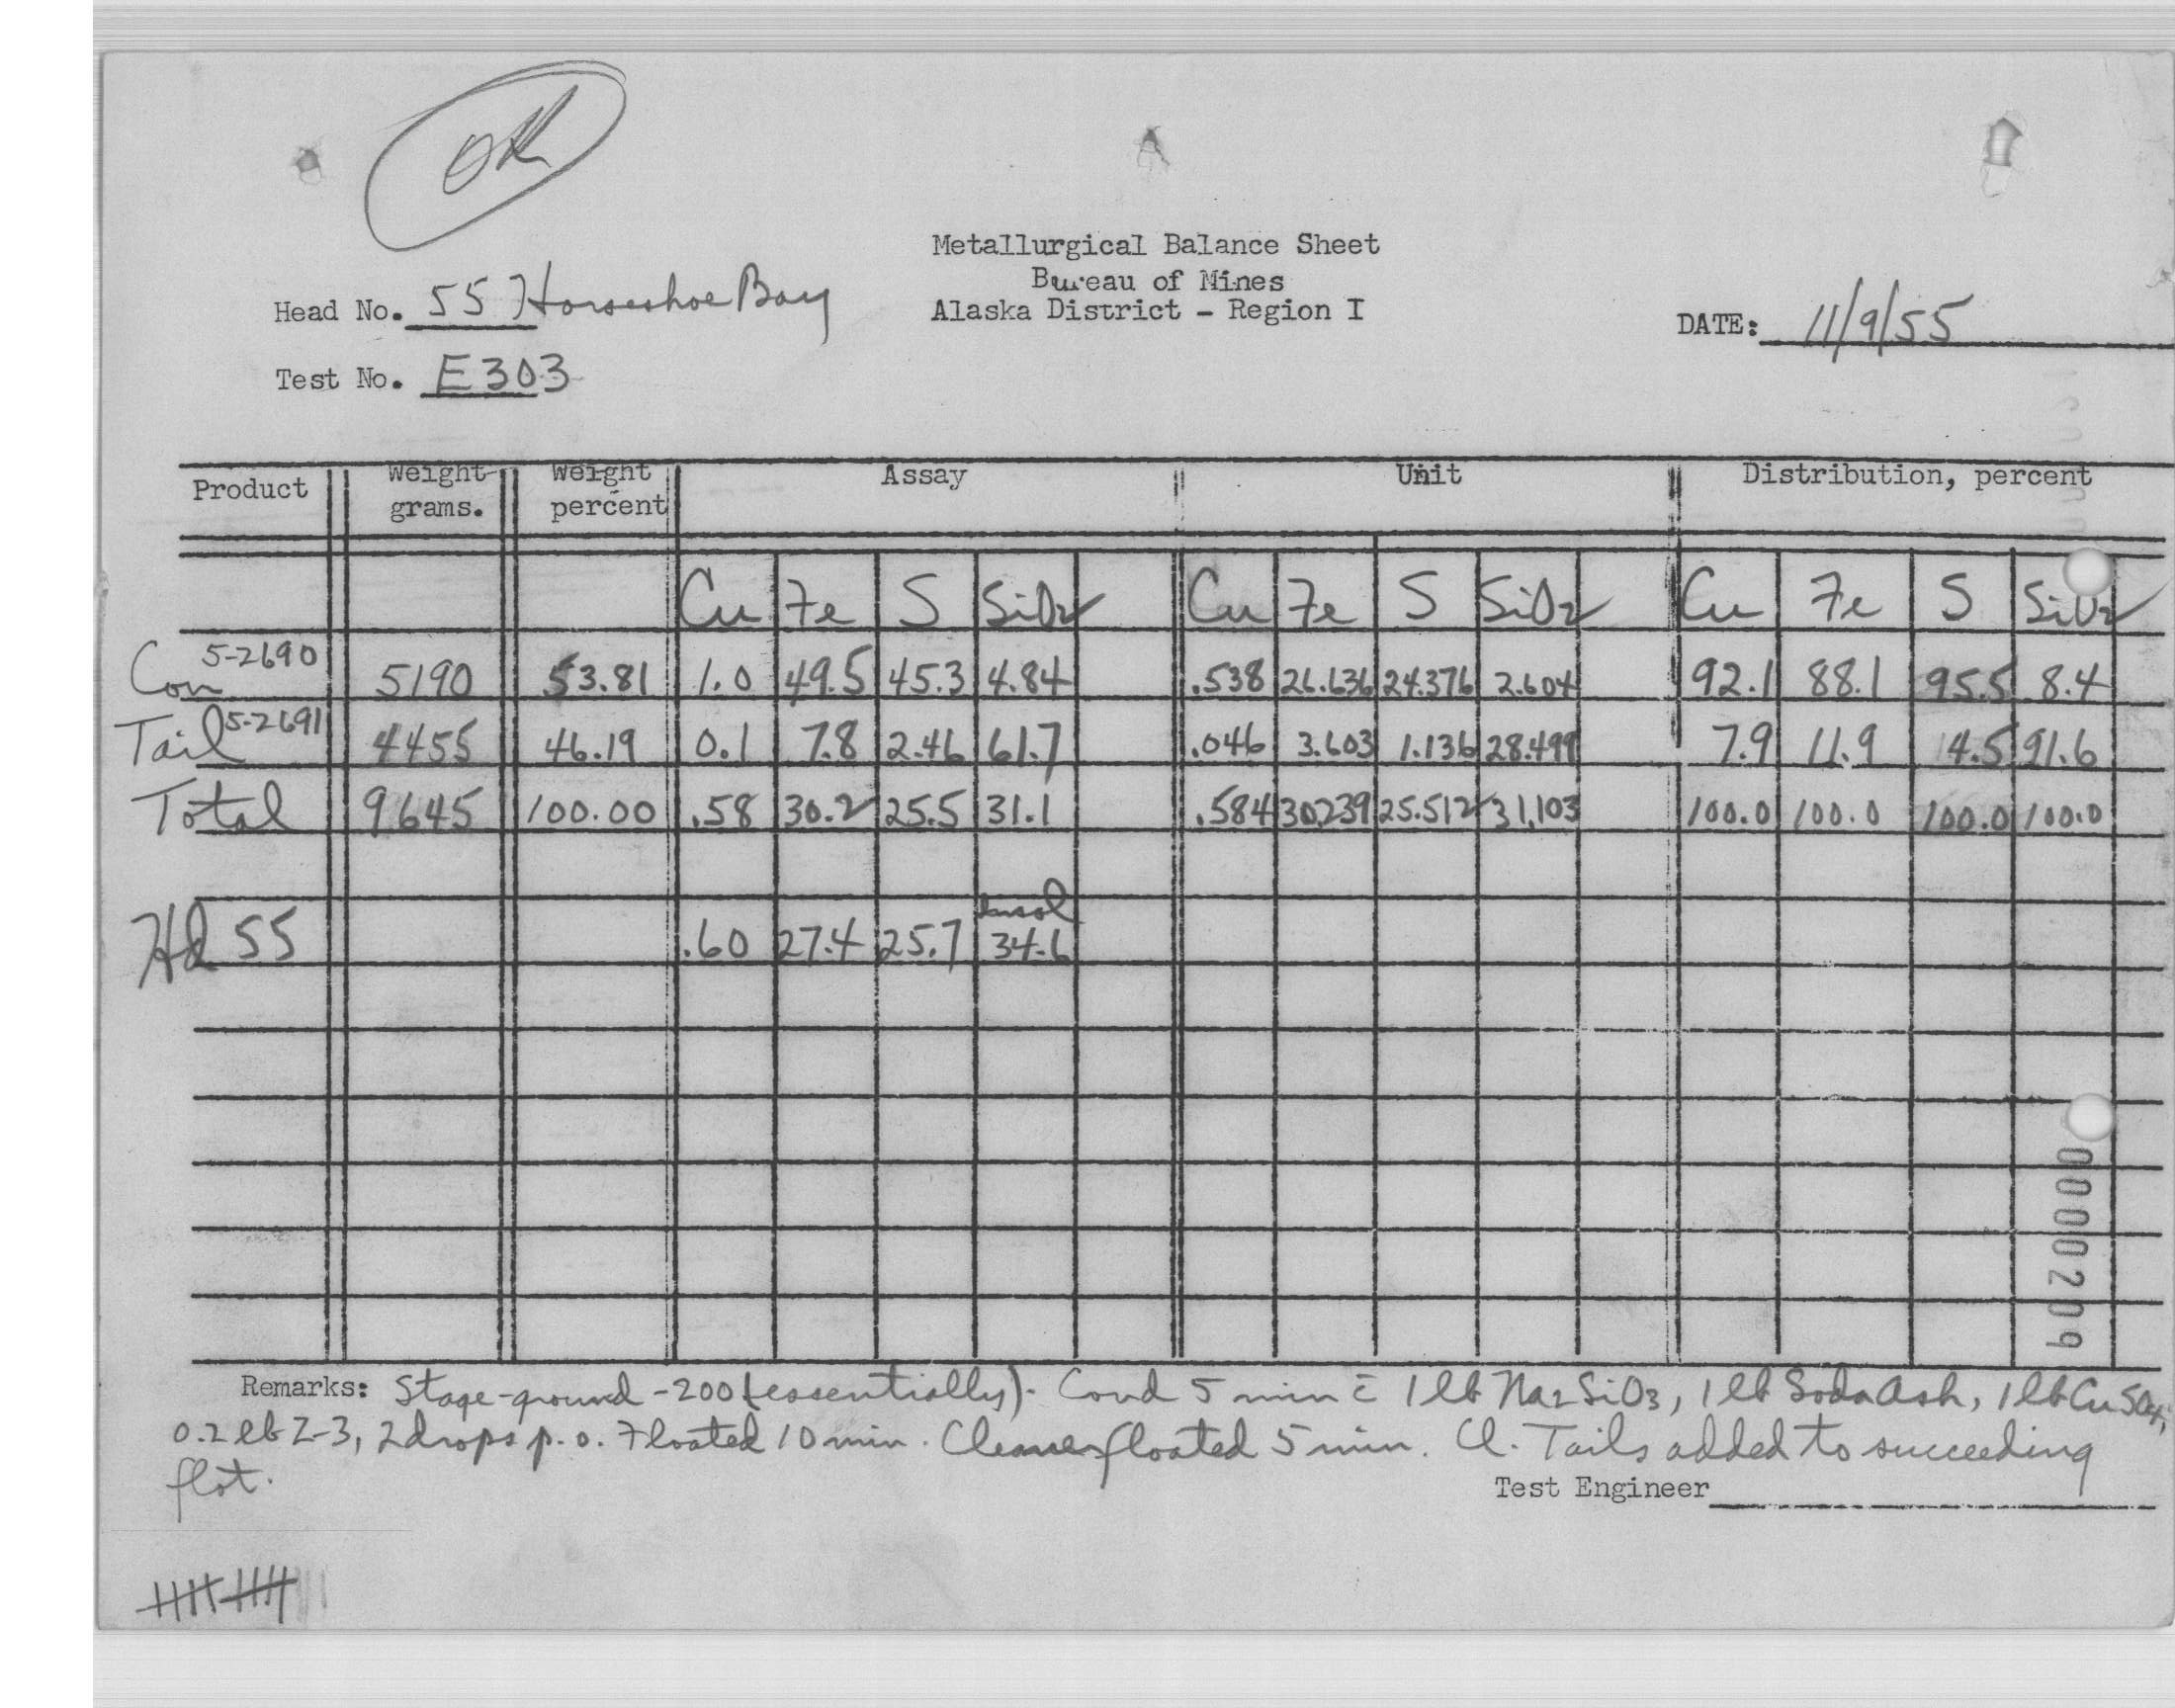 OK
Metallurgical Balance Sheet
Bureau of Mines
Alaska District - Region I
Head No. 55 Horseshoe Bay
DATE: 11/9/55
Test No. E303
Product Weight grams. Weight percent Assay Unit Distribution, percent
Cu Fe S SiO2 Cu Fe S SiO2 Cu Fe S SiO2
Con 5-2690 5190 53.81 1.0 49.5 45.3 4.84 .538 26.636 24.376 2.604 92.1 88.1 95.5 8.4
Tail 5-2691 4455 46.19 0.1 7.8 2.46 61.7 .046 3.603 1.136 28.499 7.9 11.9 4.5 91.6
Total 9645 100.00 .58 30.2 25.5 31.1 .584 30.239 25.512 31.103 100.0 100.0 100.0 100.0
insol
Hd 55 .60 27.4 25.7 34.6
0000209
Remarks: Stage-ground -200 (essentially). Cond 5 min c̄ 1 lb Na2SiO3, 1 lb Soda Ash, 1 lb CuSO4,
0.2 lb Z-3, 2 drops p.o. Floated 10 min. Cleaner floated 5 min. Cl. Tails added to succeeding
flot.
Test Engineer